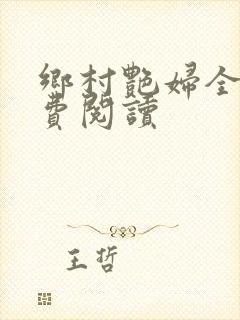 鄉村艷婦全
費閱讀
王哲